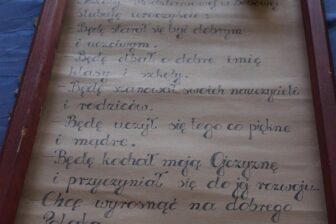 Szkoły Podstawowej w Bobowej
ślubuję uroczyście:
Będę starał się być dobrym
i uczciwym.
Będę dbał o dobre imię
klasy i szkoły.
Będę szanował swoich nauczycieli
i rodziców.
Będę uczył się tego co piękne
i mądre.
Będę kochał moją Ojczyznę
i przyczyniał się do jej rozwoju.
Chcę wyrosnąć na dobrego
Polaka